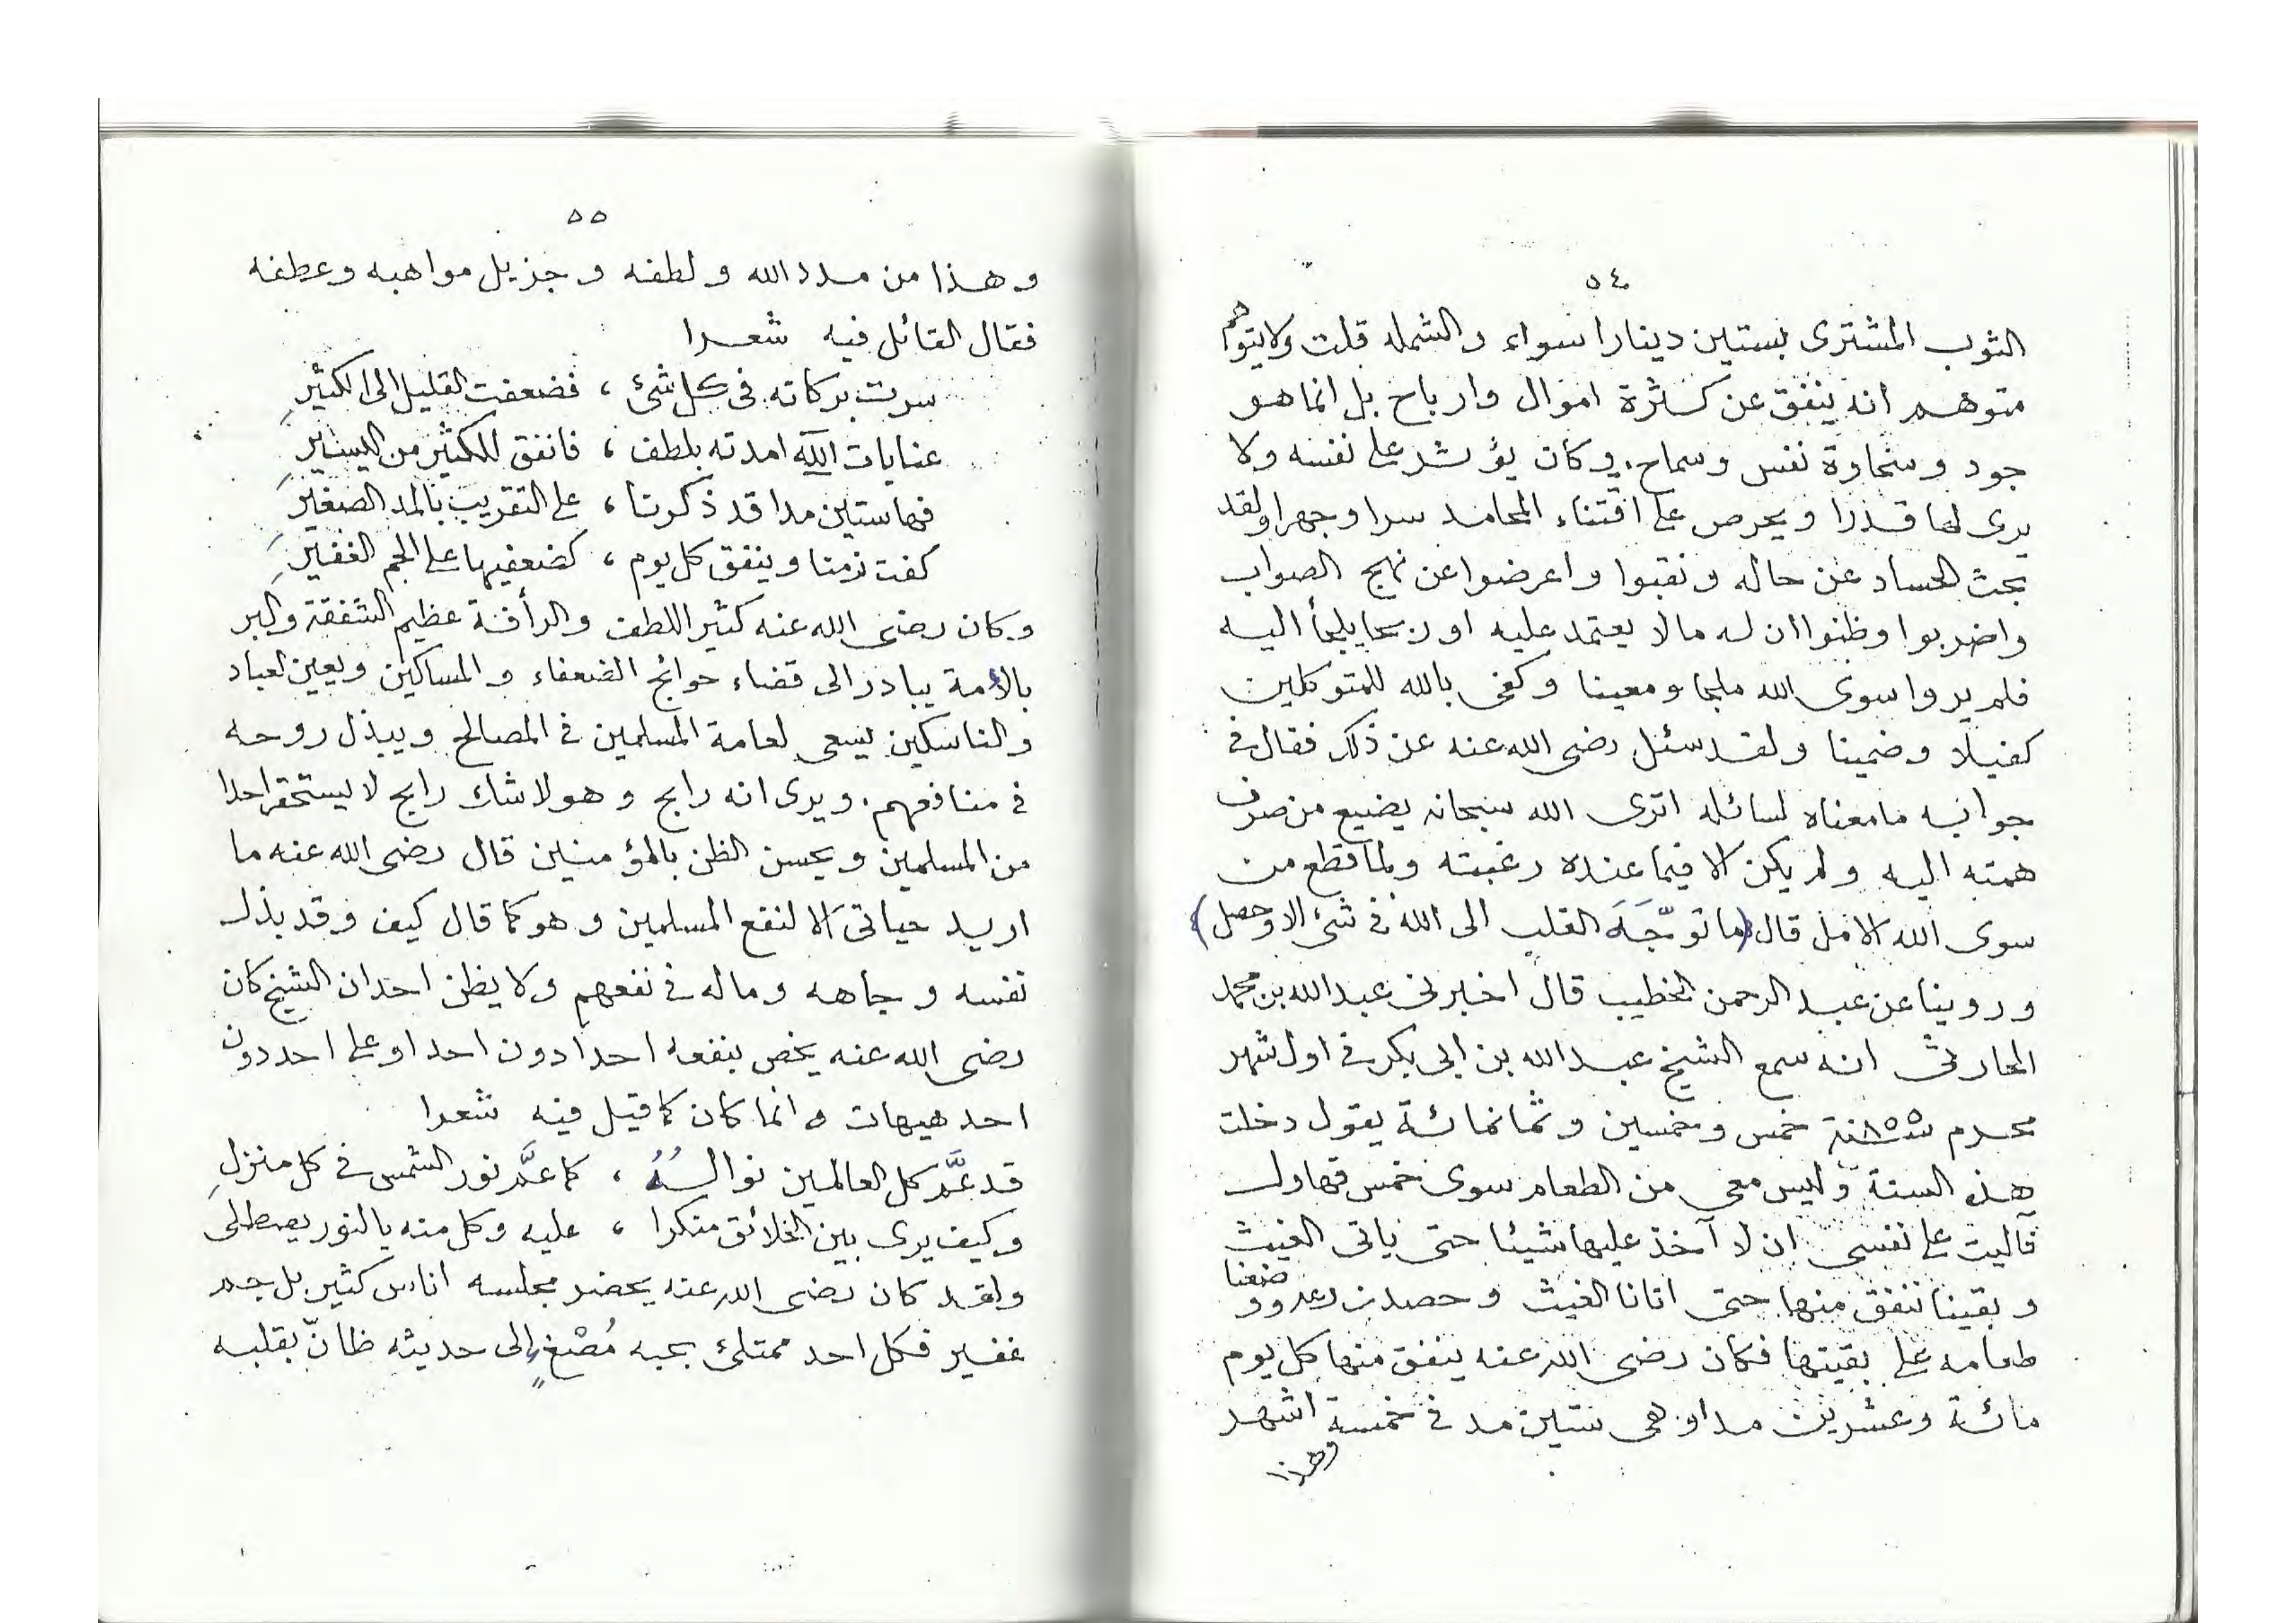 ٥٤
الثوب المشترى بستين دينارا سواء والشمله قلت ولا يتوهم
متوهم انه ينفق عن كثرة اموال وارباح بل انما هو
جود وسخاوة نفس وسماح. وكان يؤثر على نفسه ولا
يرى لها قدرا ويحرص على اقتناء المحامد سرا وجهرا ولقد
بحث الحساد عن حاله ونقبوا واعرضوا عن نهج الصواب
واضربوا وظنوا ان له مالا يعتمد عليه او ربحا يلجأ اليه
فلم يروا سوى الله ملجا ومعينا وكفى بالله للمتوكلين
كفيلا وضمينا ولقد سئل رضى الله عنه عن ذلك فقال فى
جوابه مامعناه لسائله اترى الله سبحانه يضيع من صرف
همته اليه ولم يكن الا فيما عنده رغبته ولما قطع من
سوى الله الامل قال (ما توجَّهَ القلب الى الله فى شئ الا وحصل)
وروينا عن عبد الرحمن الخطيب قال اخبرنى عبد الله بن محمد
الحارثى انه سمع الشيخ عبد الله بن ابى بكر فى اول شهر
محرم سنة ٨٥٥ خمس وخمسين وثمانمائة يقول دخلت
هذه السنة وليس معى من الطعام سوى خمس قهاول
فآليت على نفسى ان لا آخذ عليها شيئا حتى ياتى الغيث
وبقينا ننفق منها حتى اتانا الغيث وحصدت وضعنا
طعامه على بقيتها فكان رضى الله عنه ينفق منها كل يوم
مائة وعشرين مدا وهى ستين مد فى خمسة اشهر
وهذا
٥٥
وهذا من مدد الله ولطفه وجزيل مواهبه وعطفه
فقال القائل فيه شعرا
سرت بركاته فى كل شئ ، فضعفت القليل الى الكثيرِ
عنايات الآله امدته بلطف ، فانفق للكثير من اليسيرِ
فهاستين مدا قد ذكرنا ، على التقريب بالمد الصغيرِ
كفت زمنا وينفق كل يوم ، كضعفيها على الجم الغفيرِ
وكان رضى الله عنه كثير اللطف والرأفة عظيم الشفقة والبر
بالأمة يبادر الى قضاء حوائج الضعفاء والمساكين ويعين لعباد
والناسكين يسعى لعامة المسلمين فى المصالح ويبذل روحه
فى منافعهم. ويرى انه رابح وهو لاشك رابح لا يستحقر احدا
من المسلمين ويحسن الظن بالمؤمنين قال رضى الله عنه ما
اريد حياتى الا لنفع المسلمين وهو كما قال كيف وقد بذل
نفسه وجاهه وماله فى نفعهم ولا يظن احد ان الشيخ كان
رضى الله عنه يخص بنفعه احدا دون احد او على احد دون
احد هيهات وانما كان كما قيل فيه شعرا
قد عَمَّ كل العالمين نوالهُ ، كما عمَّ نور الشمس فى كل منزلِ
وكيف يرى بين الخلائق منكرا ، عليه وكل منه يالنور يصطلى
ولقد كان رضى الله عنه يحضر مجلسه اناس كثير بل جم
غفير فكل احد ممتلئ بحبه مُصْغٍ إلى حديثه ظانّ بقلبه